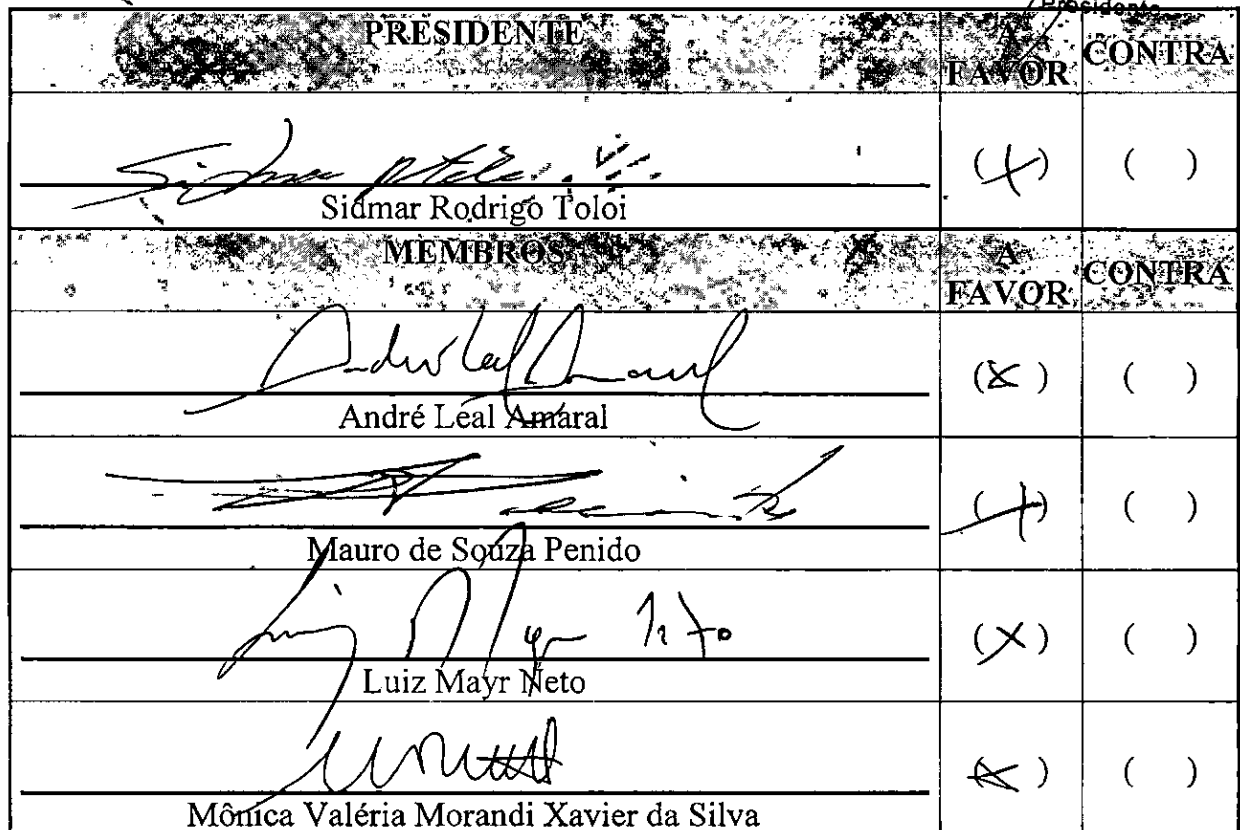 Presidente
PRESIDENTE A FAVOR CONTRA
(X) ( )
Sidmar Rodrigo Toloi
MEMBROS A FAVOR CONTRA
(X) ( )
André Leal Amaral
(X) ( )
Mauro de Souza Penido
Luiz Mayr Neto (X) ( )
Luiz Mayr Neto
(X) ( )
Mônica Valéria Morandi Xavier da Silva